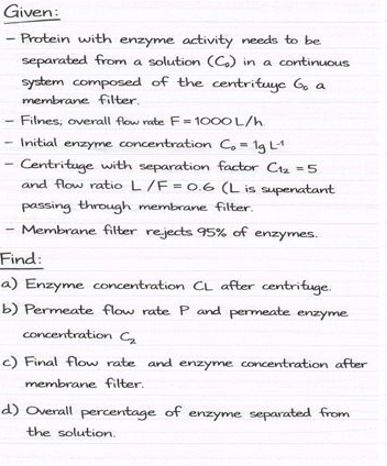 Given:
- Protein with enzyme activity needs to be
separated from a solution (C₀) in a continuous
system composed of the centrifuye G₀ a
membrane filter.
- Filnes, overall flow rate F = 1000 L/h
- Initial enzyme concentration C₀ = 1g L⁻¹
- Centrifuge with separation factor C₁₂ = 5
and flow ratio L /F = 0.6 (L is supenatant
passing through membrane filter.
- Membrane filter rejects 95% of enzymes.
Find:
a) Enzyme concentration CL after centrifuge.
b) Permeate flow rate P and permeate enzyme
concentration C₂
c) Final flow rate and enzyme concentration after
membrane filter.
d) Overall percentage of enzyme separated from
the solution.